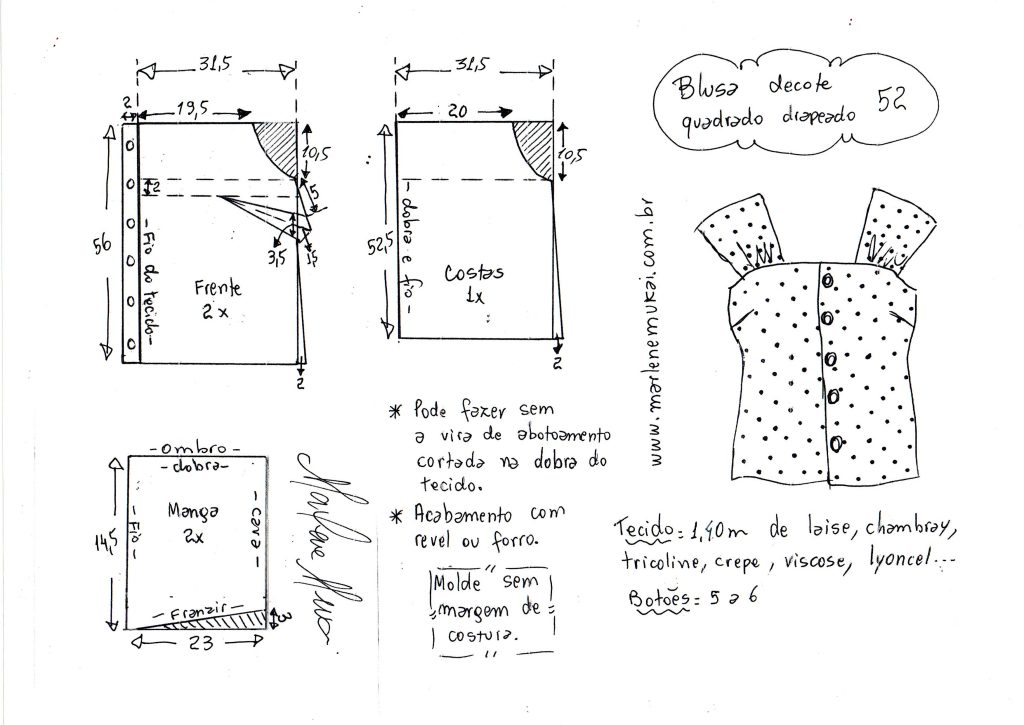 31,5
2
19,5
10,5
2
5
3,5
1,5
56
-Fio do tecido-
Frente
2x
2
31,5
20
10,5
52,5
-dobra e fio-
Costas
1x
2
Blusa decote
quadrado drapeado 52
www.marlenemukai.com.br
-ombro-
-dobra-
Manga
2x
-Fio-
-cava-
14,5
-Franzir-
3
23
Marlene Mukai
* Pode fazer sem
a vira de abotoamento
cortada na dobra do
tecido.
* Acabamento com
revel ou forro.
Molde sem
margem de
costura.
Tecido= 1,40m de laise, chambray,
tricoline, crepe, viscose, lyoncel...
Botões= 5 a 6